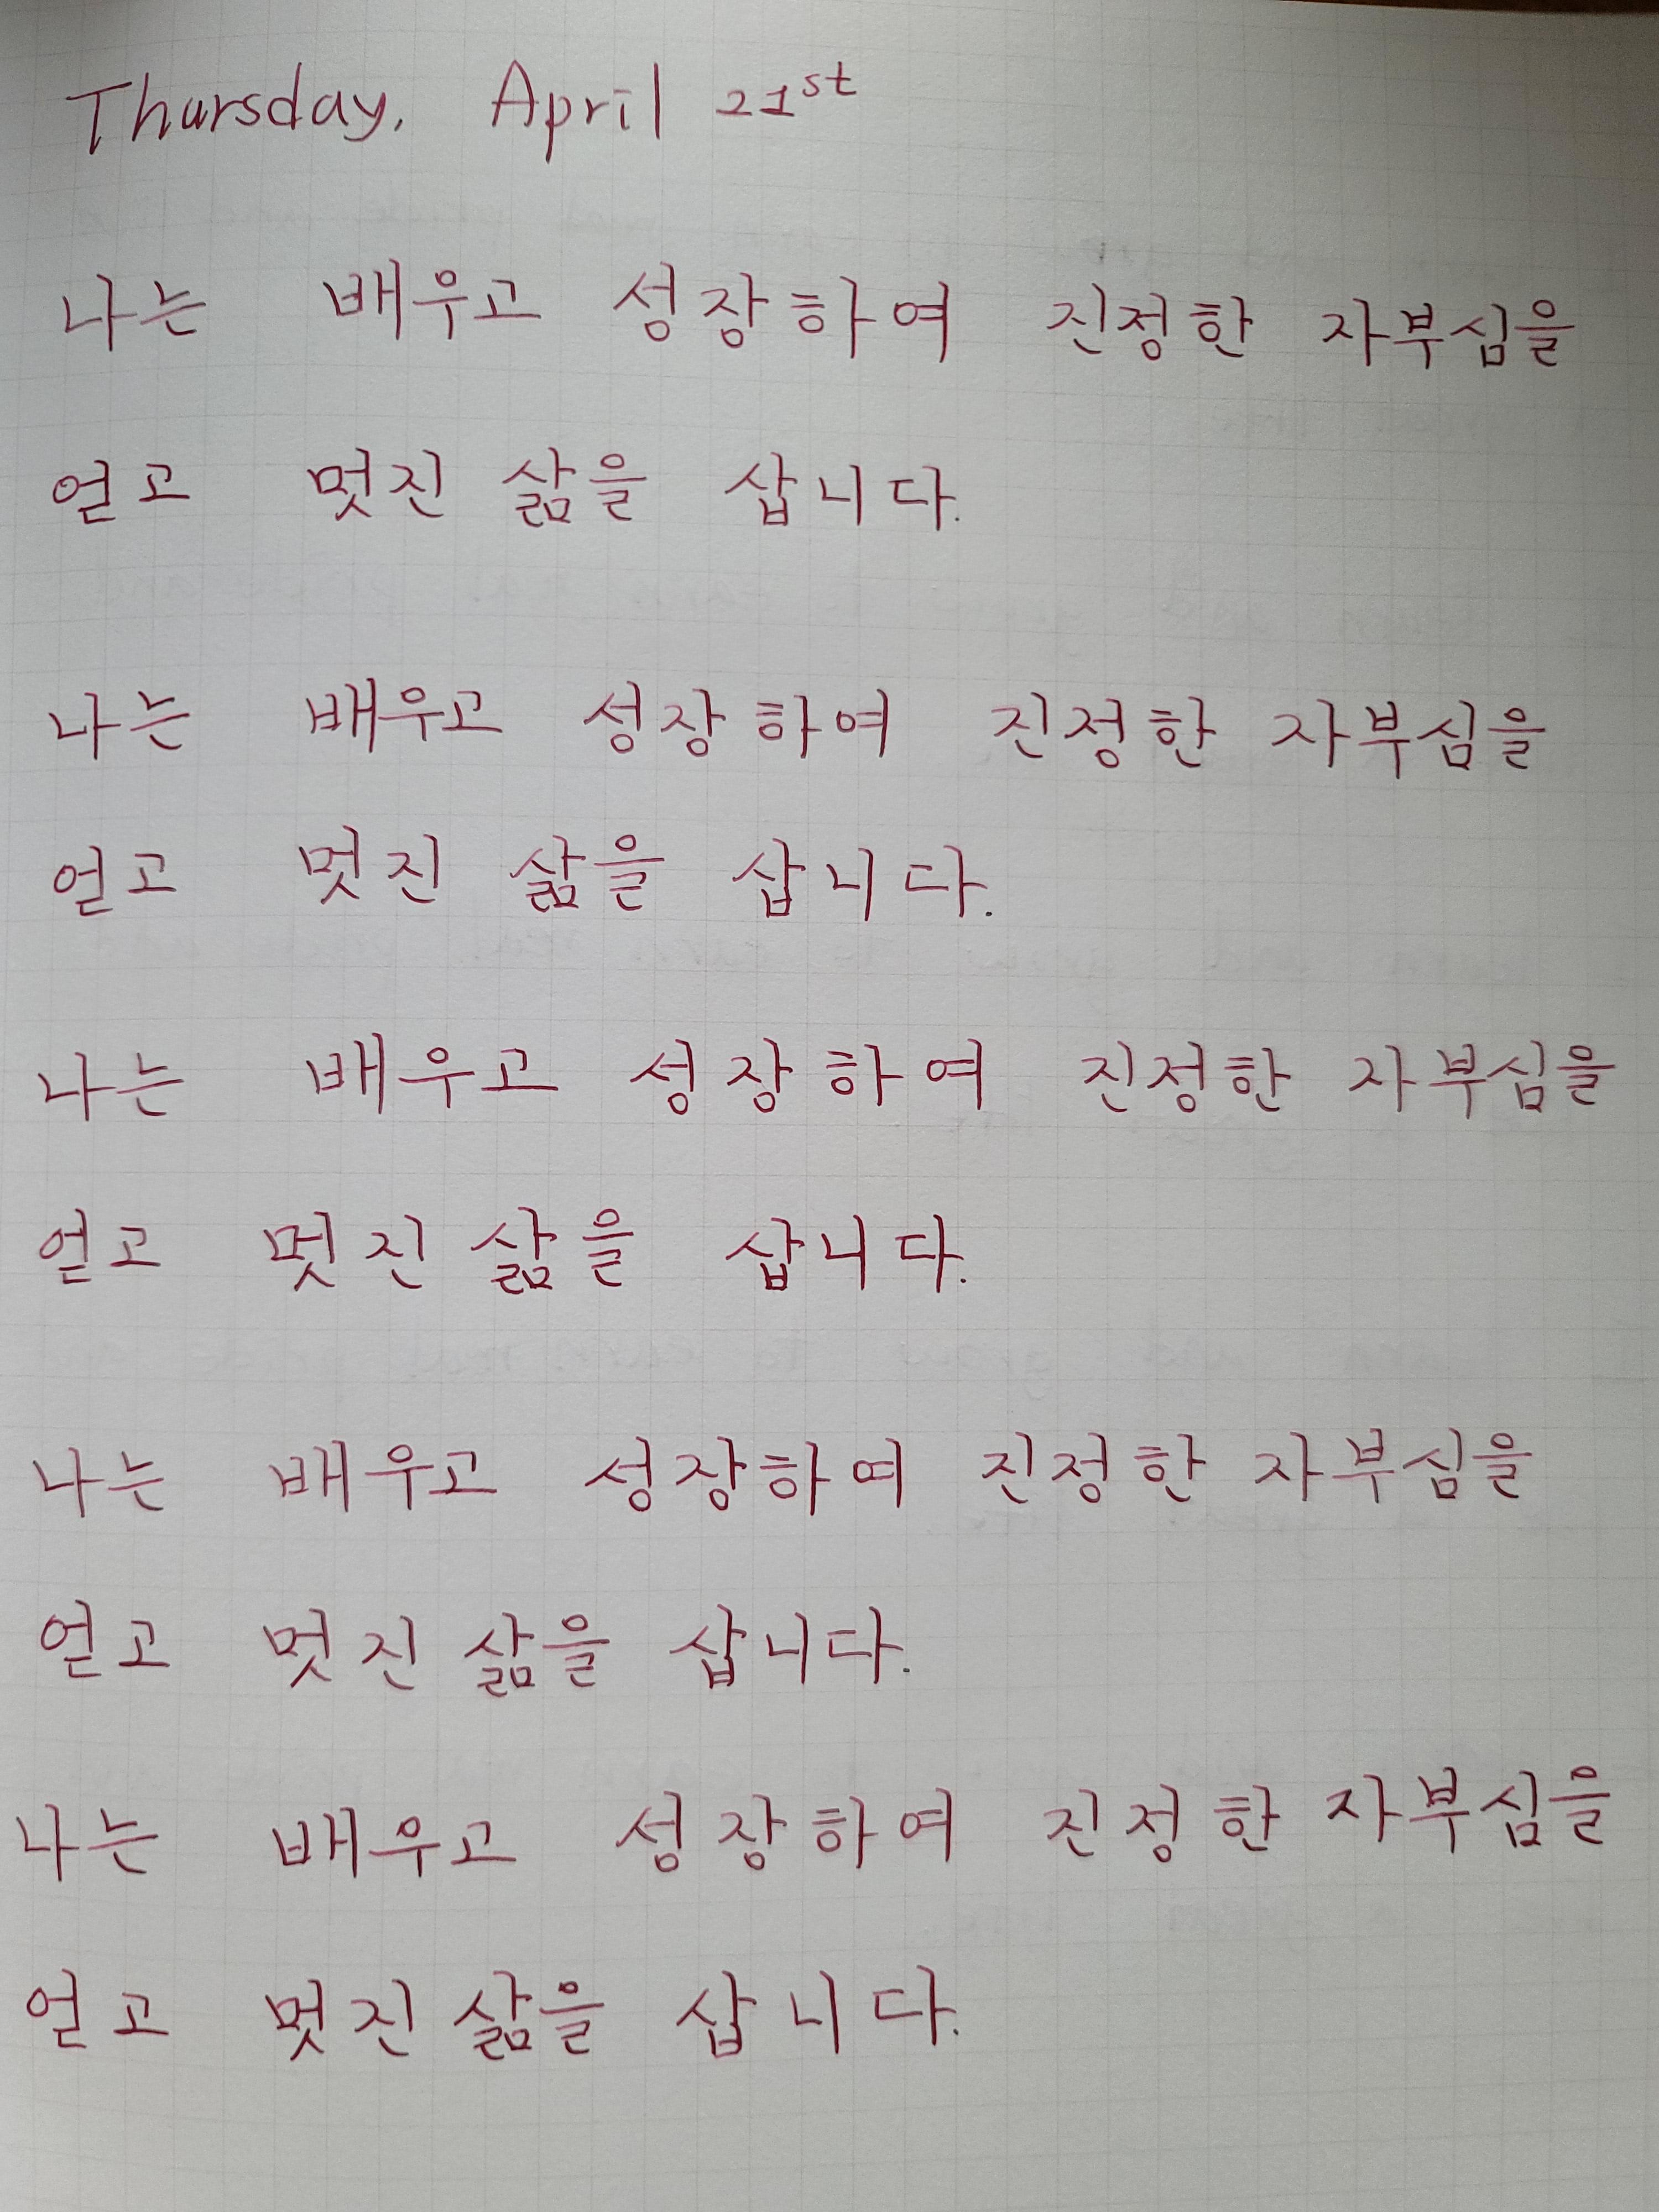 Thursday, April 21st
나는 배우고 성장하여 진정한 자부심을
얻고 멋진 삶을 삽니다.
나는 배우고 성장하여 진정한 자부심을
얻고 멋진 삶을 삽니다.
나는 배우고 성장하여 진정한 자부심을
얻고 멋진 삶을 삽니다.
나는 배우고 성장하여 진정한 자부심을
얻고 멋진 삶을 삽니다.
나는 배우고 성장하여 진정한 자부심을
얻고 멋진 삶을 삽니다.